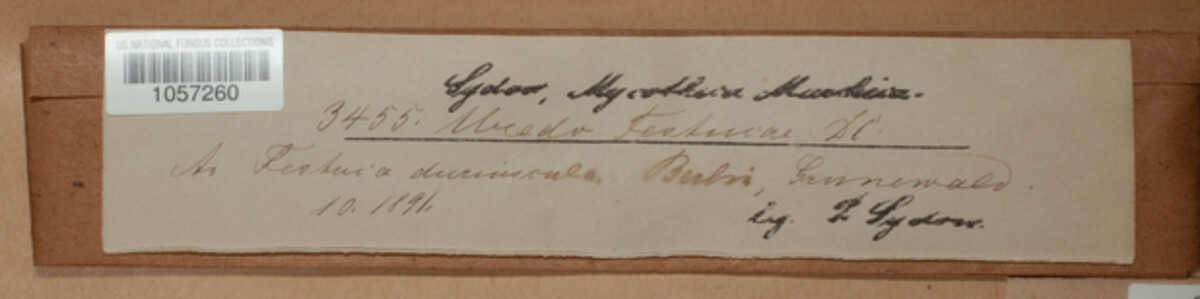 US NATIONAL FUNGUS COLLECTIONS
1057260
Sydow, Mycotheca Marchica.
3455. Uredo Festucae DC.
An Festuca duriuscula. Berlin, Grunewald.
10. 1891.
leg. P. Sydow.